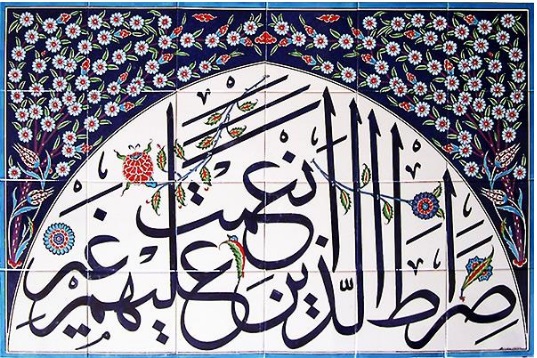 صراط الذين انعمت عليهم غير